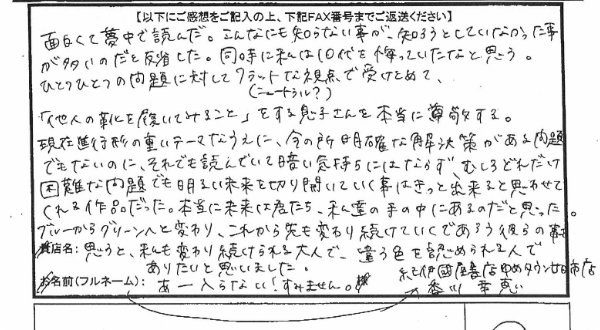 【以下にご感想をご記入の上、下記FAX番号までご返送ください】
面白くて夢中で読んだ。こんなにも知らない事が、知ろうとしていなかった事
が多いのだと反省した。同時に私は10代を侮っていたなと思う。
ひとつひとつの問題に対してフラットな視点で受けとめて、
(ニュートラル？)
「他人の靴を履いてみること」をする息子さんを本当に尊敬する。
現在進行形の重いテーマなうえに、今の所明確な解決策がある問題
でもないのに、それでも読んでいて暗い気持ちにはならず、むしろどれだけ
困難な問題でも明るい未来を切り開いていく事はきっと出来ると思わせて
くれる作品だった。本当に未来は君たち、私達の手の中にあるのだと思った。
ブルーからグリーンへと変わり、これから先も変わり続けていくであろう彼らの事を
貴店名：思うと、私も変わり続けられる大人で、違う色を認められる人で
ありたいと思いました。
紀伊國屋書店ゆめタウン廿日市店
お名前(フルネーム)：あー入らない！すみません。
香川